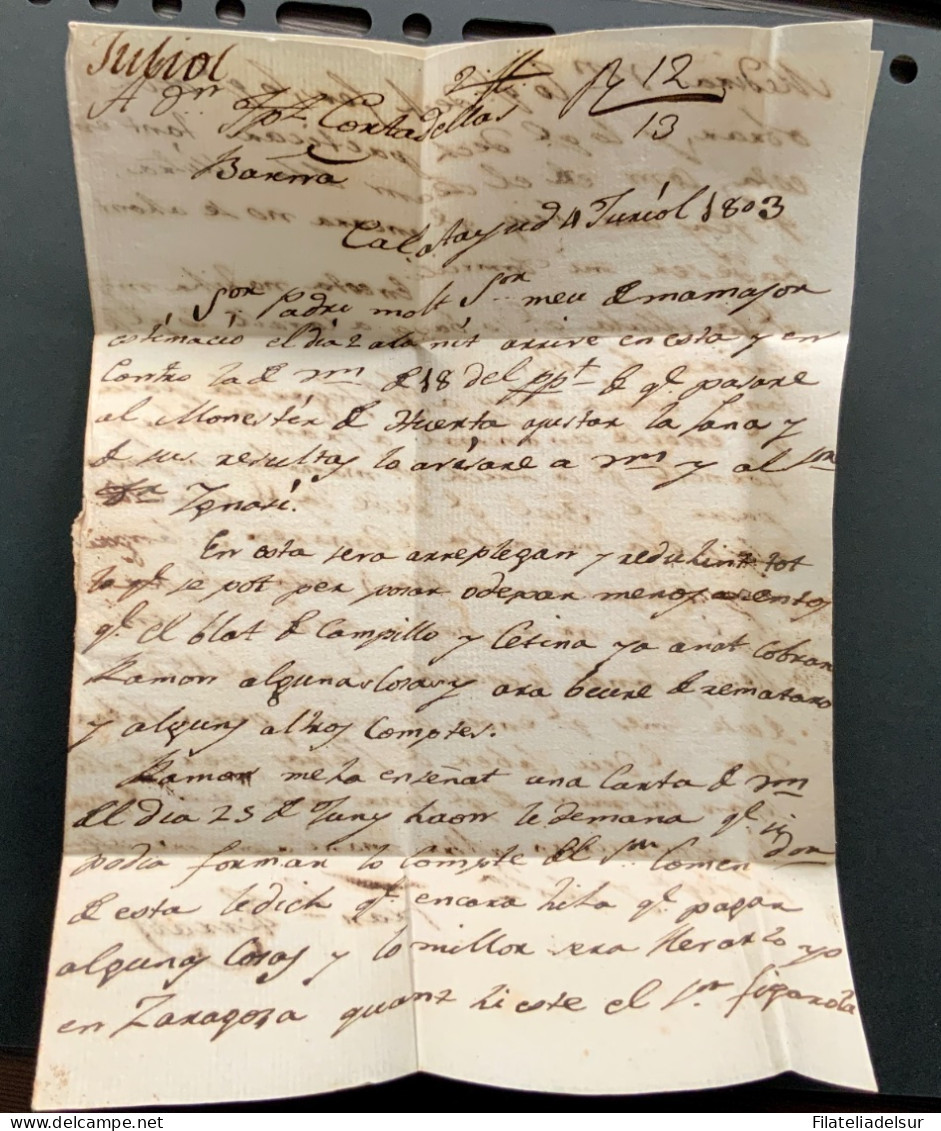 Juliol
2 R 12
A Dn Jph Cortadellas 13
Barna
Calatayud 4 Juriol 1803
Sor Padre molt Sor meu de ma major
estimació el dia 2 a la nit arrive en esta y en
contro la de Vm de 18 del ppt de qe pasare
al Monestir de Huerta ajustar la lana y
de sus resultas lo avisare a Vm y al Sor
Ignasi.
En esta sera arreplegan y reduhint tot
lo qe se pot per posar o dexar menos asentos
qe el blat de Campillo y Cetina ya anat cobran
Ramon algunas cosas y ara beure de remataro
y alguns altros Comptes.
Ramon me ha enseñat una Carta de Vm
del dia 25 de Juny haon le demana qe si
podia formar lo compte del Sor Comendor
de esta le dich qe encara hi ha qe pagar
algunas cosas y lo millor sera yo
en Zaragoza quant hi este el Sor figarola
Filateliadelsur